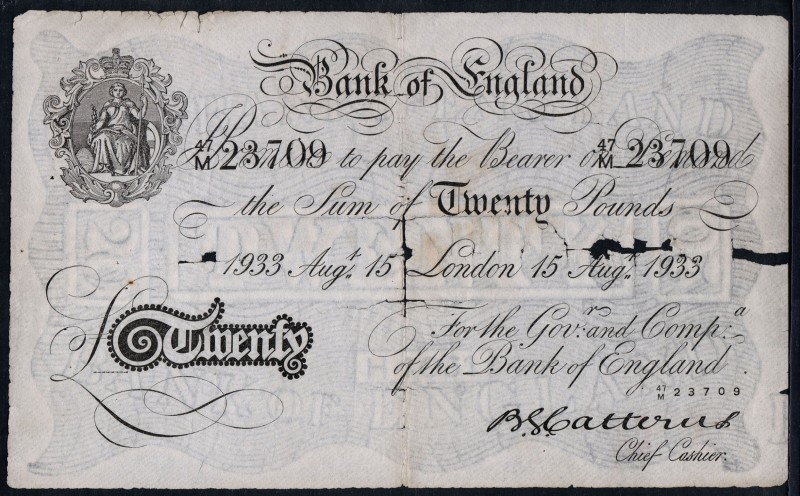 Bank of England
47/M 23709 to pay the Bearer on Demand 47/M 23709
the Sum of Twenty Pounds
1933 Augt. 15 London 15 Augt. 1933
£Twenty
For the Govr. and Compa.
of the Bank of England.
47/M 23709
B.G. Catterns
Chief Cashier.